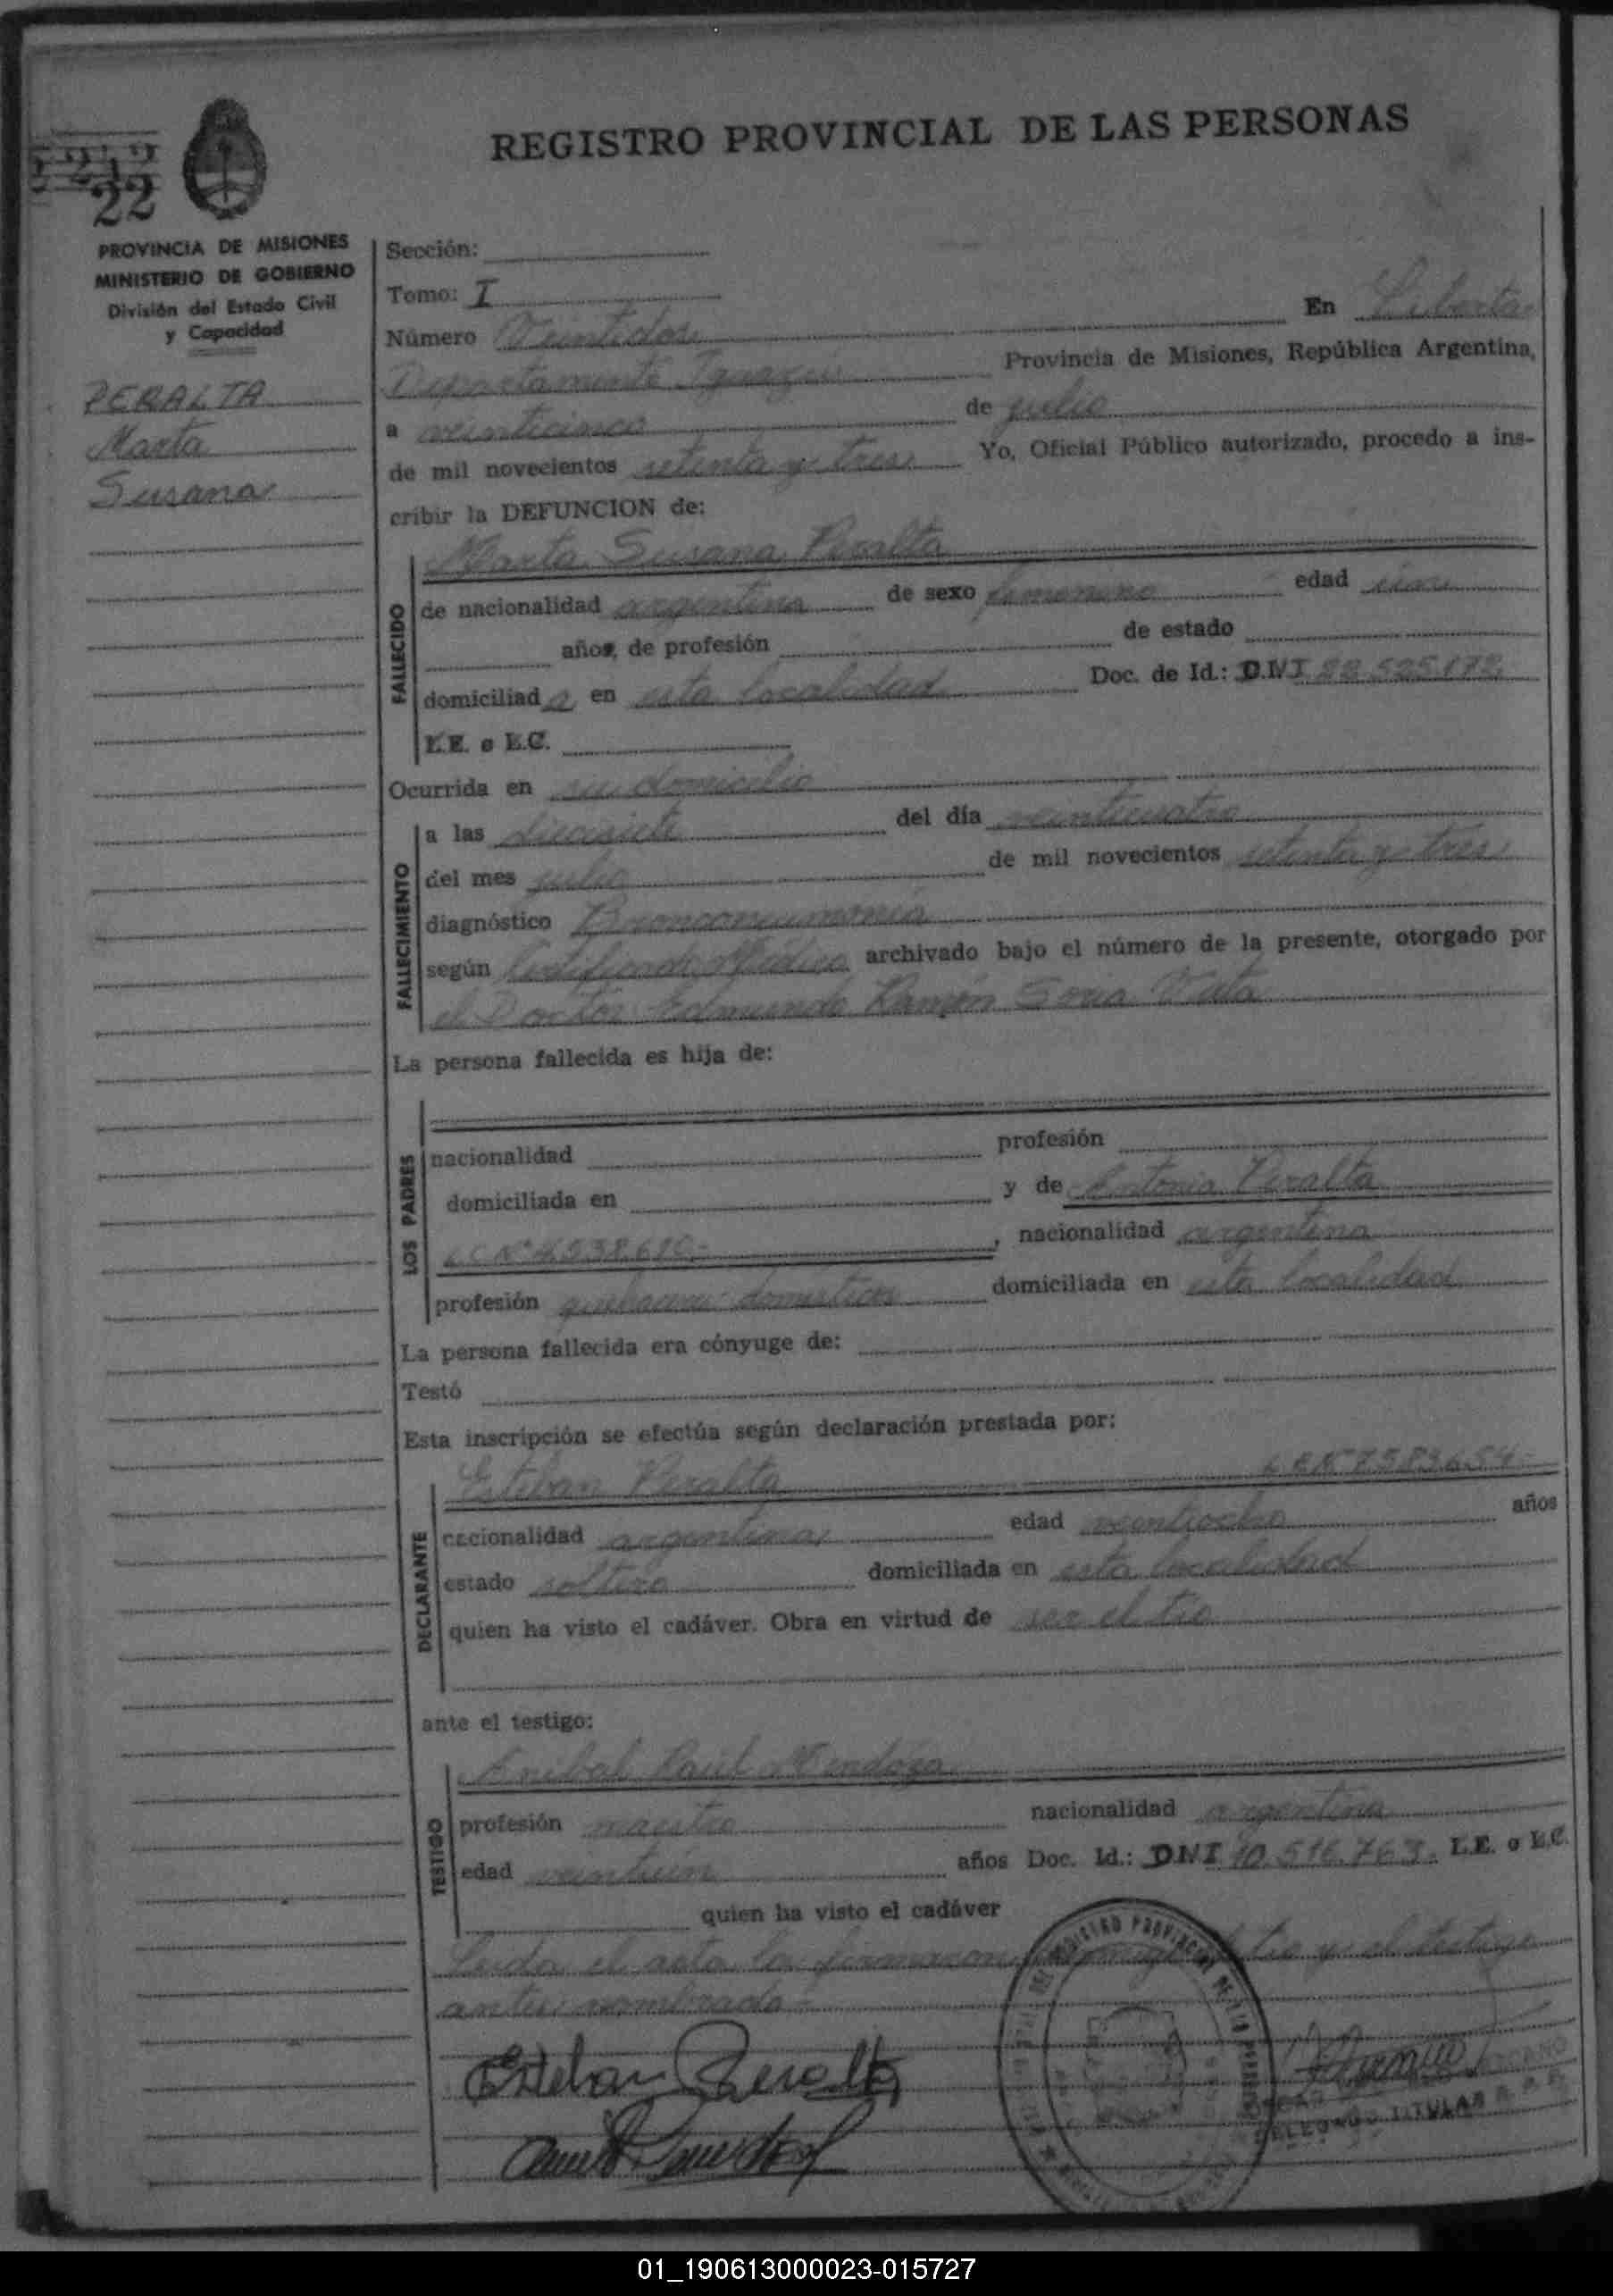 REGISTRO PROVINCIAL DE LAS PERSONAS
22
PROVINCIA DE MISIONES
MINISTERIO DE GOBIERNO
División del Estado Civil
y Capacidad
PERALTA
Marta
Susana
Sección:
Tomo: I
Número Veintidos En Libertad
Departamento Iguazú Provincia de Misiones, República Argentina,
a veinticinco de julio
de mil novecientos setenta y tres Yo, Oficial Público autorizado, procedo a ins-
cribir la DEFUNCION de:
FALLECIDO
Marta Susana Peralta
de nacionalidad argentina de sexo femenino edad un
años, de profesión de estado
domiciliad a en esta localidad Doc. de Id.: D.N.I 22.525.172
L.E. o L.C.
Ocurrida en su domicilio
FALLECIMIENTO
a las diecisiete del día veinticuatro
del mes julio de mil novecientos setenta y tres
diagnóstico Bronconeumonía
según Certificado Médico archivado bajo el número de la presente, otorgado por
el Doctor Edmundo Ramón Soria Vieta
La persona fallecida es hija de:
LOS PADRES
nacionalidad profesión
domiciliada en y de Antonia Peralta
L.C Nº 4.538.610.- , nacionalidad argentina
profesión quehaceres domesticos domiciliada en esta localidad
La persona fallecida era cónyuge de:
Testó
Esta inscripción se efectúa según declaración prestada por:
DECLARANTE
Esteban Peralta L.E.Nº 7.583.654-
nacionalidad argentina edad veintiocho años
estado soltero domiciliada en esta localidad
quien ha visto el cadáver. Obra en virtud de ser el tío
ante el testigo:
TESTIGO
Anibal Raúl Mendoza
profesión maestro nacionalidad argentina
edad veintiún años Doc. Id.: D.N.I 10.516.763. L.E. o L.C.
quien ha visto el cadáver
Leida el acta la firmaron conmigo el tío y el testigo
antes nombrado-
Esteban Peralta
DELEGADO TITULAR
01_190613000023-015727